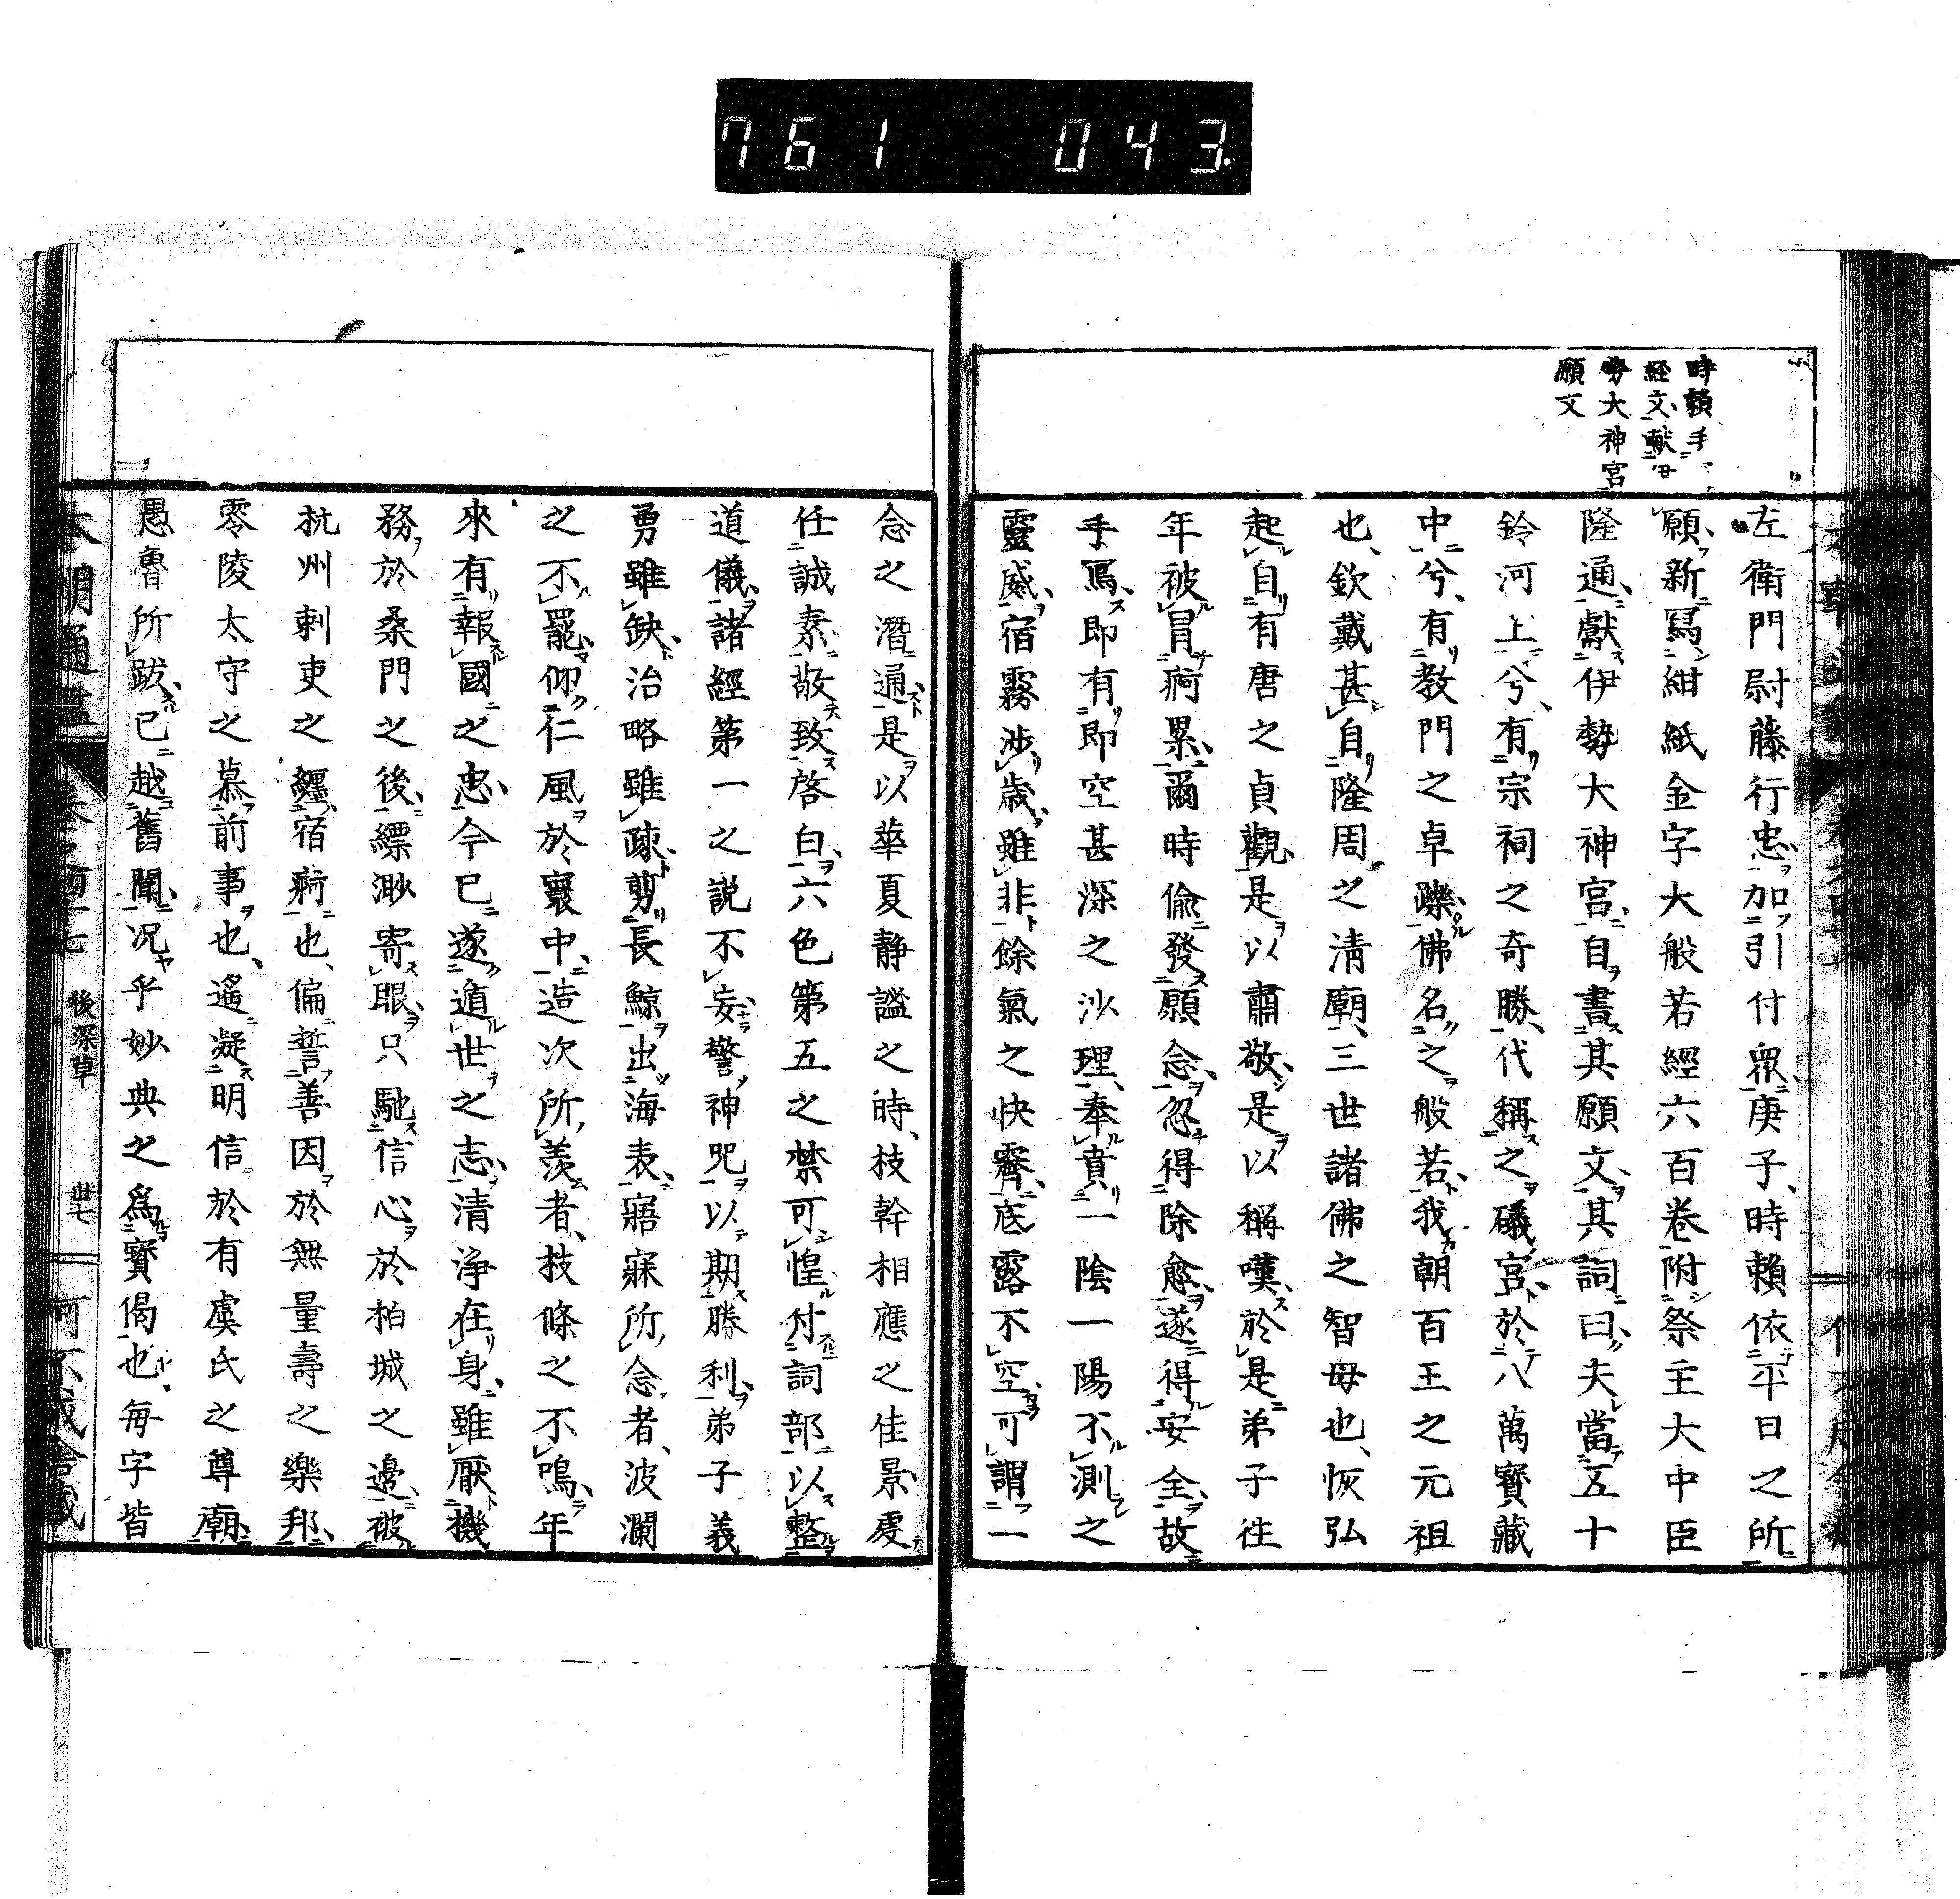 761 043
時頼手
経文献伊
勢大神宮
願文
左衛門尉藤行忠加引付衆庚子時頼依平日之所
願新寫紺紙金字大般若經六百卷附祭主大中臣
隆通獻伊勢大神宮自書其願文其詞曰夫當五十
鈴河上兮有宗祠之奇勝代稱之礒宮於八萬寳藏
中兮有教門之卓躒佛名之般若我朝百王之元祖
也欽戴甚自隆周之清廟三世諸佛之智母也恢弘
起自有唐之貞觀是以肅敬是以稱嘆於是弟子往
年被冒痾累爾時偷發願念忽得除愈遂得安全故
手寫即有即空甚深之沙理奉賁一陰一陽不測之
靈威宿霧渉歳雖非餘氣之快霽底露不空可謂一
念之潛通是以華夏静謐之時枝幹相應之佳景處
任誠素敬致啓白六色第五之禁可惶付詞部以整
道儀諸經第一之説不妄警神咒以期勝利弟子義
勇雖缺治略雖疎剪長鯨出海表寤寐所念者波瀾
之不罷仰仁風於寰中造次所羨者枝條之不鳴年
來有報國之忠今已遂遁世之志清浄在身雖厭機
務於桑門之後縹渺寄眼只馳信心於柏城之邊被
杭州刺吏之纒宿痾也偏誓善因於無量壽之樂邦
零陵太守之慕前事也遙凝明信於有虞氏之尊廟
愚魯所跋已越舊聞况乎妙典之爲寳偈也毎字皆
本朝通鑑 卷之百十七 後深草 卅七